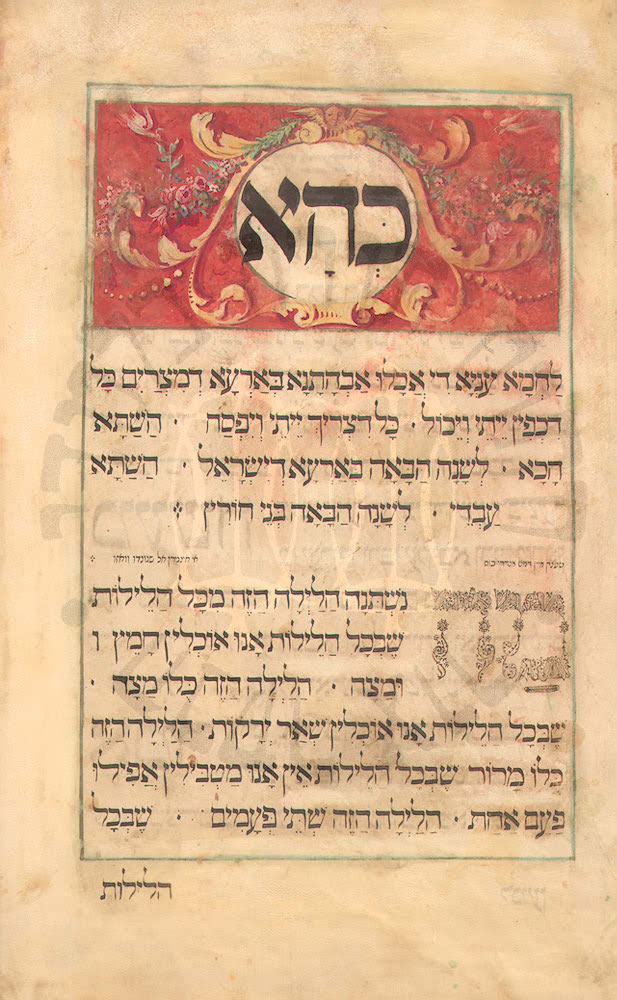 כְּהָא
לַחְמָא עַנְיָא דִי אֲכָלוּ אַבְהָתָנָא בְּאַרְעָא דְמִצְרַיִם כָּל
דִכְפִין יֵיתֵי וְיֵכוֹל · כָּל דִצְרִיךְ יֵיתֵי וְיִפְסַח · הַשַׁתָּא
הָכָא · לְשָׁנָה הַבָּאָה בְּאַרְעָא דְיִשְׂרָאֵל · הַשַׁתָּא
עַבְדֵי · לְשָׁנָה הַבָּאָה בְּנֵי חוֹרִין
מה נִשְׁתַּנָה הַלַיְלָה הַזֶה מִכָּל הַלֵילוֹת
שֶׁבְּכָל הַלֵילוֹת אָנוּ אוֹכְלִין חָמֵץ ו
וּמַצָה · הַלַיְלָה הַזֶה כֻּלוֹ מַצָה ·
שֶׁבְּכָל הַלֵילוֹת אָנוּ אוֹכְלִין שְׁאָר יְרָקוֹת · הַלַיְלָה הַזֶה
כֻּלוֹ מָרוֹר שֶׁבְּכָל הַלֵילוֹת אֵין אָנוּ מַטְבִּילִין אֲפִילוּ
פַּעַם אַחַת · הַלַיְלָה הַזֶה שְׁתֵּי פְּעָמִים · שֶׁבְּכָל
הלילות